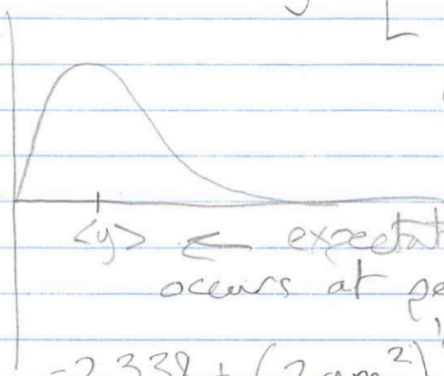 <y> ← expectat
occurs at pe
-2.338 + (2 gm²)